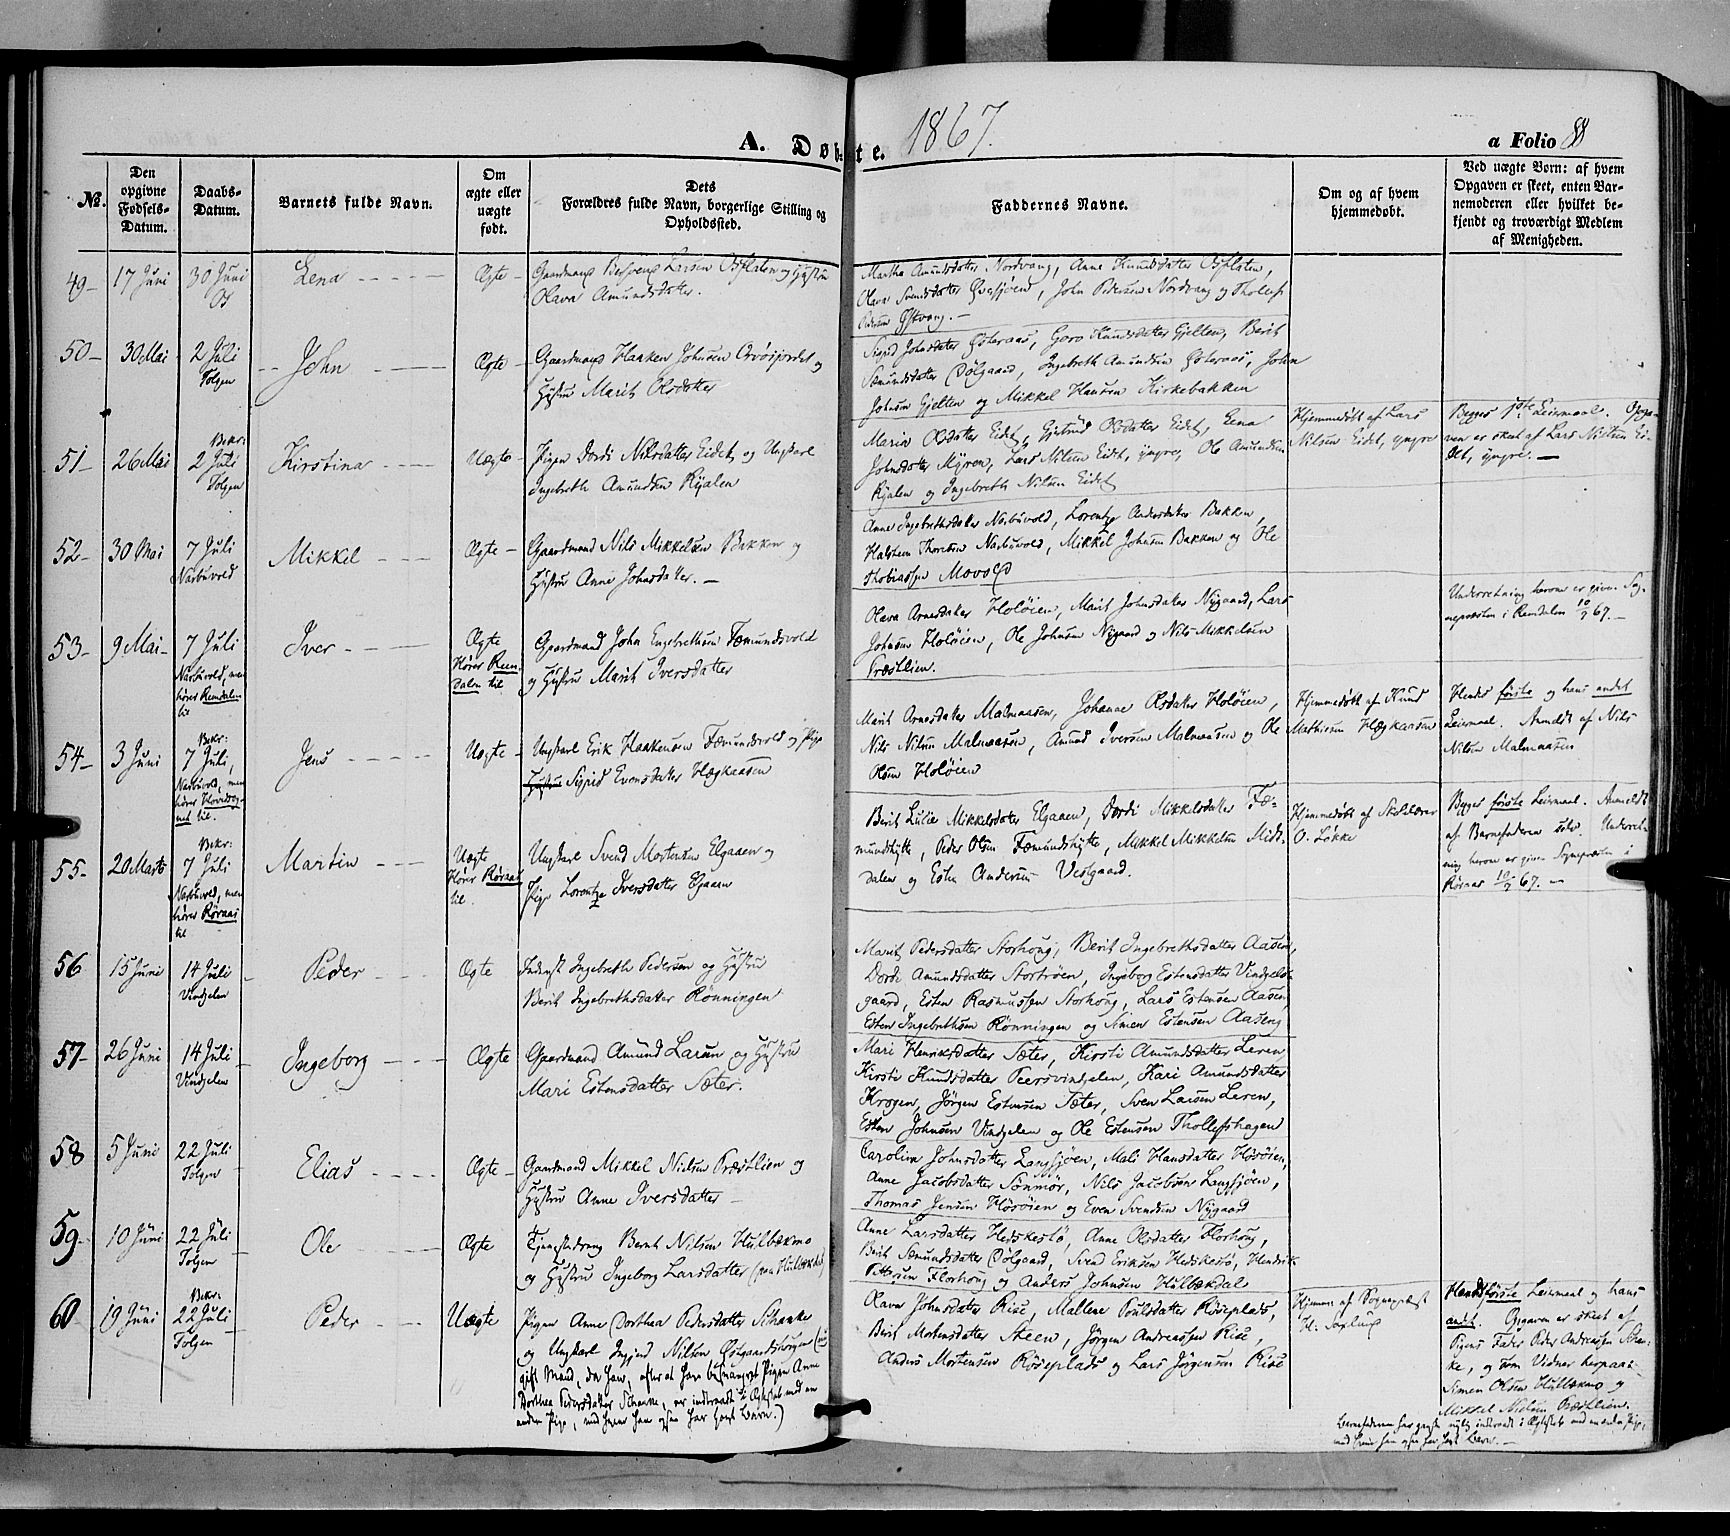 A. Døbte. 1867.
a Folio 88
No.
Den opgivne Fødsels-Datum.
Daabs-Datum.
Barnets fulde Navn.
Om ægte eller uægte født.
Dets Forældres fulde Navn, borgerlige Stilling og Opholdssted.
Faddernes Navne.
Om og af hvem hjemmedøbt.
Ved uægte Børn: af hvem Opgaven er skeet, enten Barnemoderen eller hvilket bekjendt og troværdigt Medlem af Menigheden.
49 17 Juni 30 Juni Os Lena Ægte
Gaardmand Larsen Osflaten og Hustru
Olava Amundsdatter.
Martha Amundsdatter Nordvang, Anne Knudsdatter Osflaten,
Olava Svendsdatter Øversjøen, John Pedersen Nordvang og Thollef
Pedersen Østvang.
50 30 Mai 2 Juli Tolgen John Ægte
Gaardmand Haaken Johnsen og
Hustru Marit Olsdatter
Sigrid Johnsdatter Østeraas, Goro Knudsdatter Gjelten, Berit
Sæmundsdatter Dølgaard, Ingebreth Amundsen Østeraas, John
Johnsen Gjelten og Mikkel Hansen Kirkebakken
51 26 Mai Bekr: 2 Juli Tolgen Kirstina Uægte
Pigen Dordi Nilsdatter Eidet og Ungkarl
Ingebreth Amundsen Ryalen
Marie Olsdatter Eidet, Gjertrud Olsdatter Eidet, Lena
Johnsdatter Myren, Lars Nilsen Eidet, yngre, Ole Amundsen
Ryalen og Ingebreth Nilsen Eidet
Hjemmedøbt af Lars
Nilsen Eidet, yngre
Begges 1ste Leiermaal. Opga-
ven er skeet af Lars Nilsen Ei-
det, yngre.
52 30 Mai 7 Juli Narbuvold Mikkel Ægte
Gaardmand Nils Mikkelsen Bakken og
Hustru Anne Johnsdatter.
Anne Ingebrethsdatter Narbuvold, Lorentze Andersdatter Bakken,
Halsten Thoresen Narbuvold, Mikkel Johnsen Bakken og Ole
Thobiassen Movold
53 9 Mai 7 Juli Narbuvold, men hører Rendalen til Iver Ægte Hører Rendalen til
Gaardmand John Engebrethsen Fæmundsvold
og Hustru Marit Iversdatter
Olava Arnesdatter Holøien, Marit Johnsdatter Nygaard, Lars
Johnsen Holøien, Ole Johnsen Nygaard og Nils Mikkelsen
Præstlien.
Underretning herom er given Sog-
nepræsten i Rendalen 10/7 67.
54 3 Juni Bekr: 7 Juli, Narbuvold, men hører til. Jens Uægte
Ungkarl Erik Haakensen Fæmundsvold og Pige
Hustru Sigrid Evensdatter Hægkaasen
Marit Arnesdatter Malmaasen, Johanne Olsdatter Holøien,
Nils Nilsen Malmaasen, Amund Iversen Malmaasen og Ole
Olsen Holøien
Hjemmedøbt af Knud
Mathiesen Hægkaasen
Hendes første og hans andet
Leiermaal. Anmeldt af Nils
Nilsen Malmaasen
55 20 Marts Bekr: 7 Juli Narbuvold, men hører Røraas til Martin Uægte Hører Røraas til.
Ungkarl Svend Mortensen Elgaaen og
Pige Lorentze Iversdatter Elgaaen
Berit Lucie Mikkelsdatter Elgaaen, Dordi Mikkelsdatter Fæ-
mundshytte, Peder Olsen Fæmundshytte, Mikkel Mikkelsen Mid-
dalen og Esten Andersen Vestgaard.
Hjemmedøbt af Skolelærer
O. Løkke
Begges første Leiermaal. Anmeldt
af Barnefaderen selv. Underret-
ning herom er given Sognepræsten i
Røraas 10/7 67.
56 15 Juni 14 Juli Vingelen Peder Ægte
Inderst Ingebreth Pedersen og Hustru
Berit Ingebrethsdatter Rønningen
Marit Pedersdatter Storhong, Berit Ingebrethsdatter Aasen,
Dordi Amundsdatter Stortrøen, Ingeborg Estensdatter Vingels-
gaard, Esten Rasmussen Storhong, Lars Estensen Aasen,
Esten Ingebrethsen Rønningen og Simen Estensen Aaseng
57 26 Juni 14 Juli Vingelen Ingeborg Ægte
Gaardmand Amund Larsen og Hustru
Mari Estensdatter Sæter.
Mari Henriksdatter Sæter, Kirsti Amundsdatter Leren,
Kirsti Knudsdatter Peersvingelen, Kari Amundsdatter
Krogen, Jørgen Estensen Sæter, Sven Larsen Leren,
Esten Johnsen Vingelen og Ole Estensen Thollefshagen
58 5 Juni 22 Juli Tolgen Elias Ægte
Gaardmand Mikkel Nielsen Præstlien og
Hustru Anne Iversdatter
Caroline Johnsdatter Langsjøen, Mali Hansdatter Hösöien,
Anne Jacobsdatter Sönmör, Nils Jacobsen Langsjøen,
Thomas Jensen Hösöien og Even Svendsen Nygaard
59 10 Juni 22 Juli Tolgen Ole Ægte
Tjenestedreng Bernt Nilsen Hulbækmo
og Hustru Ingeborg Larsdatter (paa Hulbækdal)
Anne Larsdatter Hedskestø, Anne Olsdatter Florhong,
Berit Sæmundsdatter Dølgaard, Svend Eriksen Hedskestø, Hendrik
Pettersen Florhong og Anders Johnsen Hulbækdal
60 19 Juni Bekr: 22 Juli Tolgen Peder Uægte
Pigen Anne Dorthea Pedersdatter Schanke
og Ungkarl Ingjerd Nilsen (nu
gift Mand, da han, efter at have besvangret Pigen Anne
Dorthea Pedersdatter Schanke, er indtraadt i Ægteskab med en
anden Pige, med hvem han ogsaa har havt Barn.)
Olava Johnsdatter Rise, Mallene Poulsdatter Röseplads,
Berit Mortensdatter Steen, Jørgen Andreassen Rise,
Anders Mortensen Röseplads og Lars Jörgensen Rise
Hjemm. af Sognepræst
H.
Hendes første Leiermaal og hans
andet. Opgaven er skeet af
Pigens Fader Peder Andreassen Schan-
ke, og som Vidner herpaa:
Simen Olsen Hulbækmo og
Mikkel Nielsen Præstlien.
Barnefaderen har ganske nylig indtraadt i Ægteskab med en anden Pige,
med hvem han ogsaa har havt Barn.